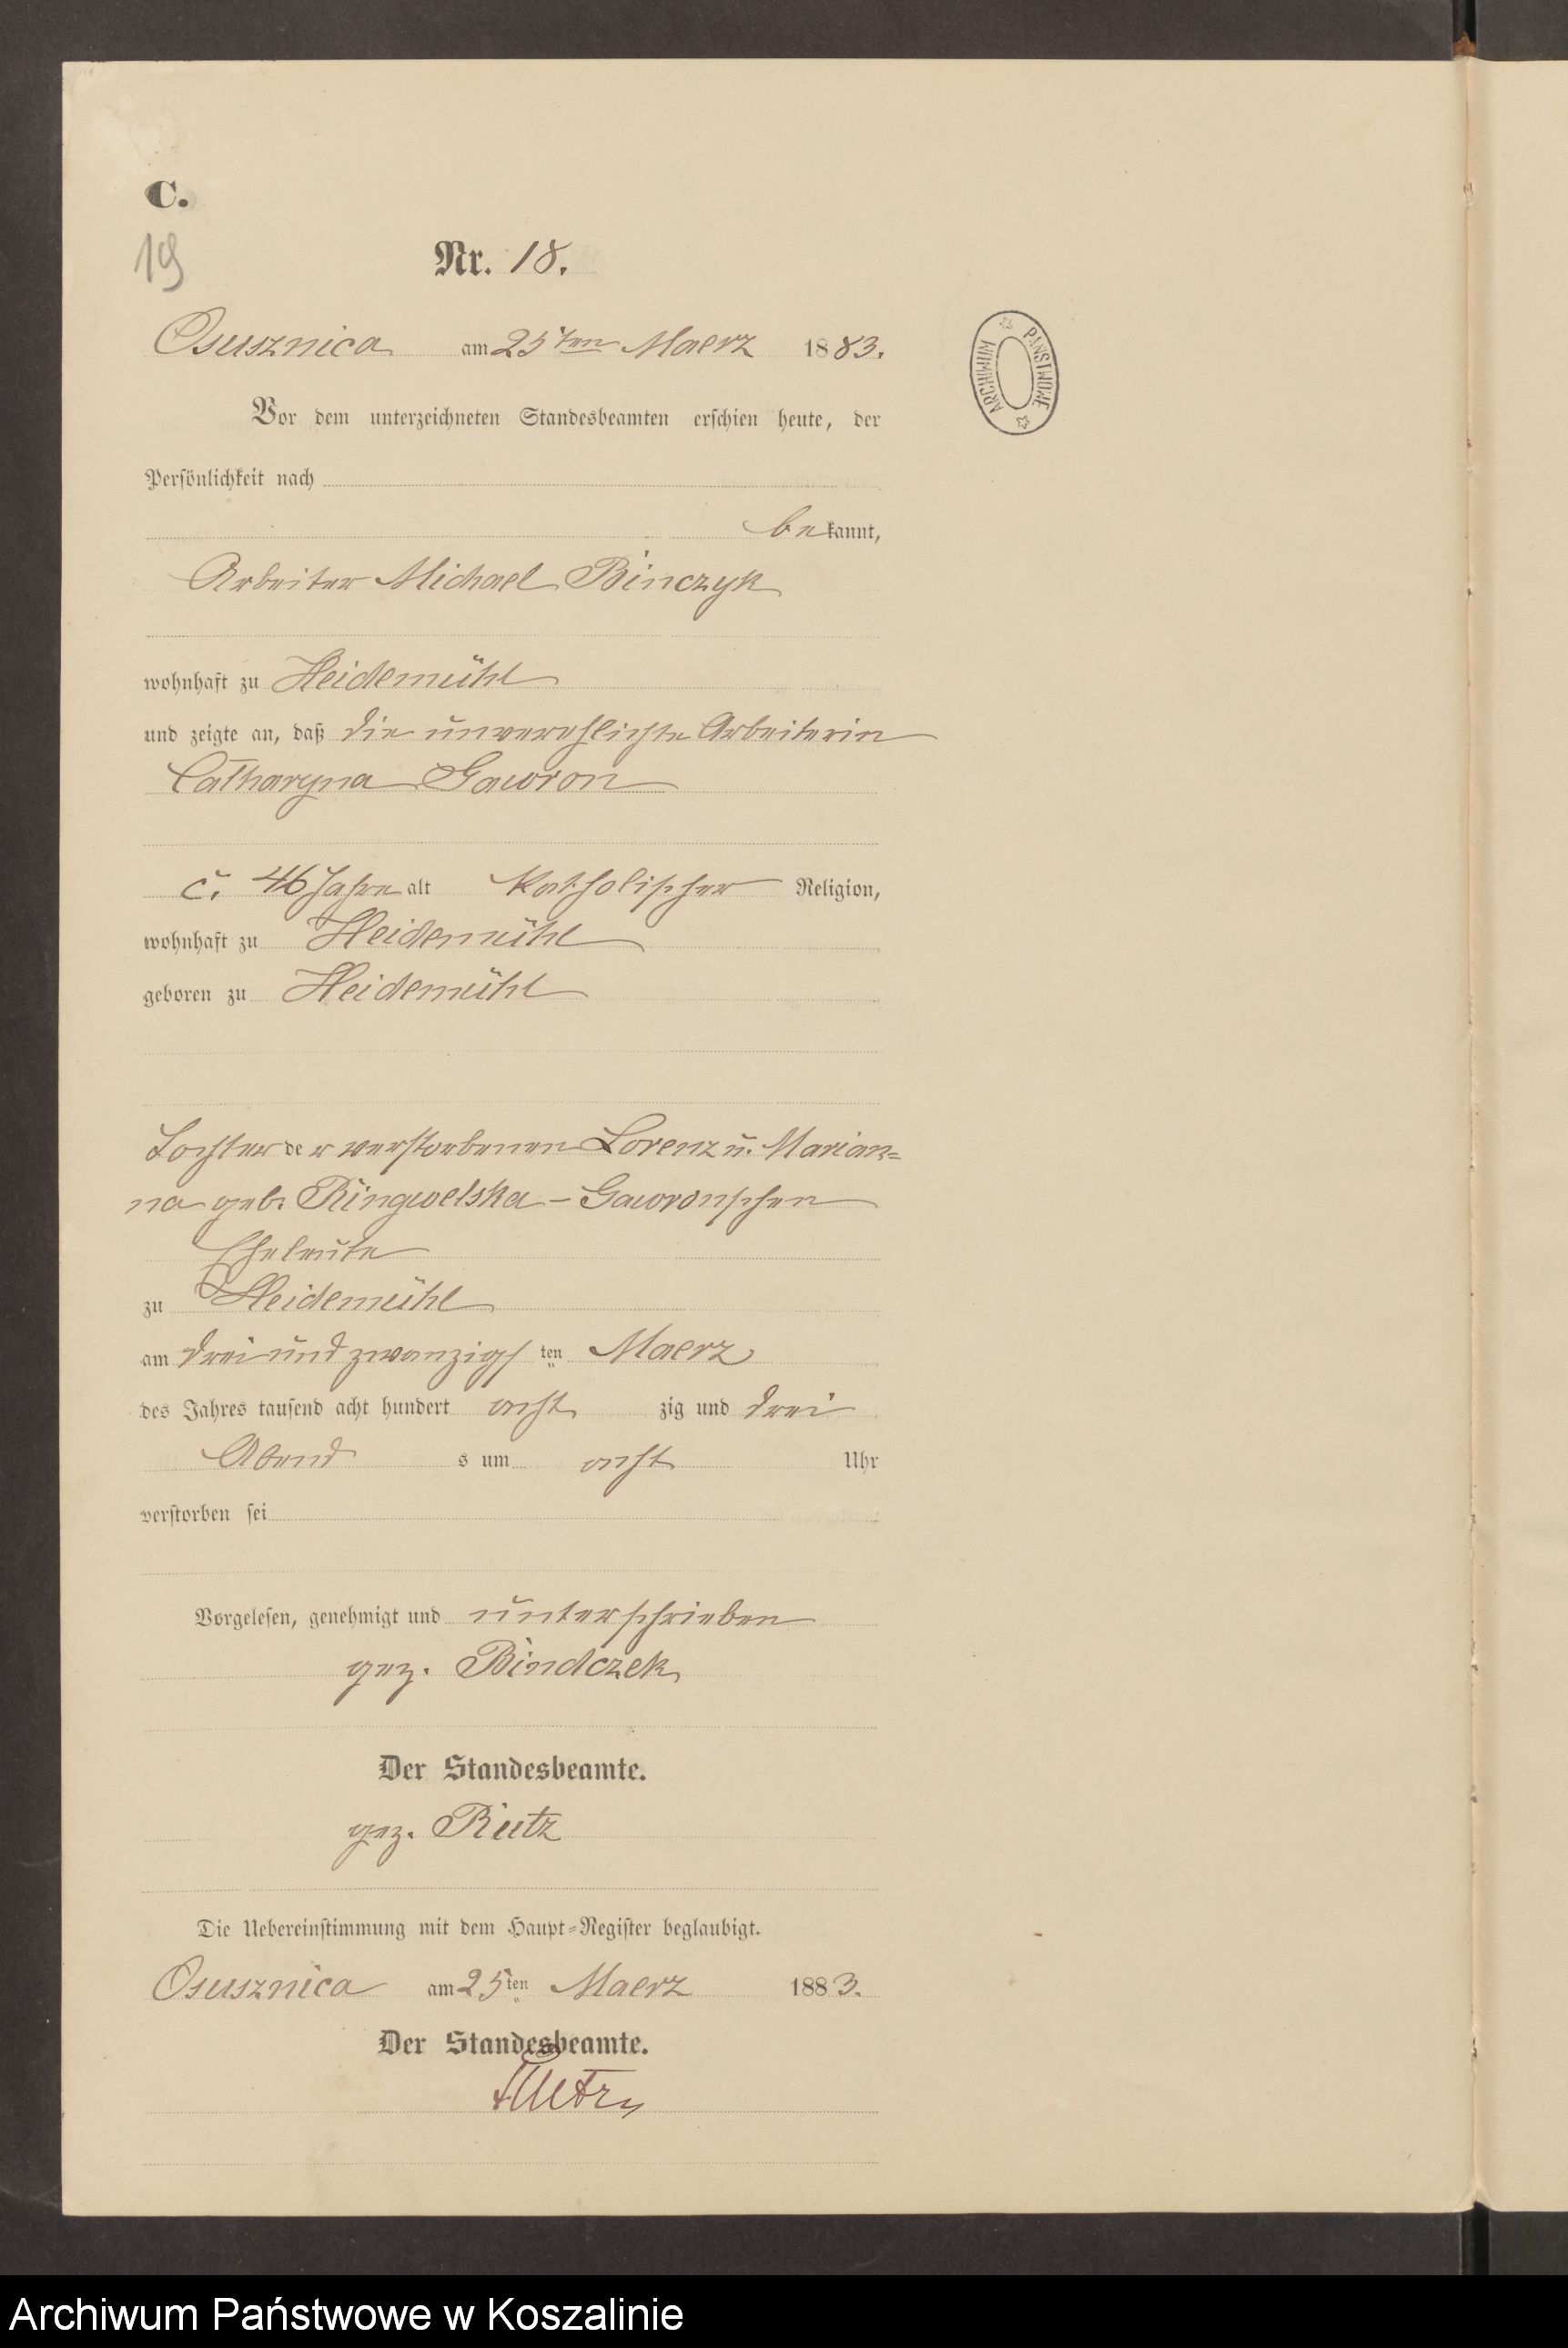 C.
19
Nr. 18.
Osusznica am 25ten Maerz 1883.
PAŃSTWOWE ARCHIWUM
Vor dem unterzeichneten Standesbeamten erschien heute, der
Persönlichkeit nach
bekannt,
Arbeiter Michael Binczyk
wohnhaft zu Heidemühl
und zeigte an, daß die unverehlichte Arbeiterin
Catharyna Gawron
c. 46 Jahre alt Katholischer Religion,
wohnhaft zu Heidemühl
geboren zu Heidemühl
Tochter der verstorbenen Lorenz u. Marian=
na geb. Ringwelska - Gawronschen
Eheleute
zu Heidemühl
am drei und zwanzigsten Maerz
des Jahres tausend acht hundert acht zig und drei
Abend s um acht Uhr
verstorben sei
Vorgelesen, genehmigt und unterschrieben
gez. Bindczek
Der Standesbeamte.
gez. Rutz
Die Uebereinstimmung mit dem Haupt=Register beglaubigt.
Osusznica am 25ten Maerz 1883.
Der Standesbeamte.
Rutz
Archiwum Państwowe w Koszalinie